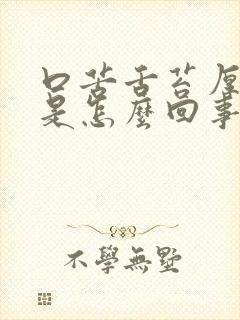 口苦舌苔厚
是怎麼回事
不學無墅